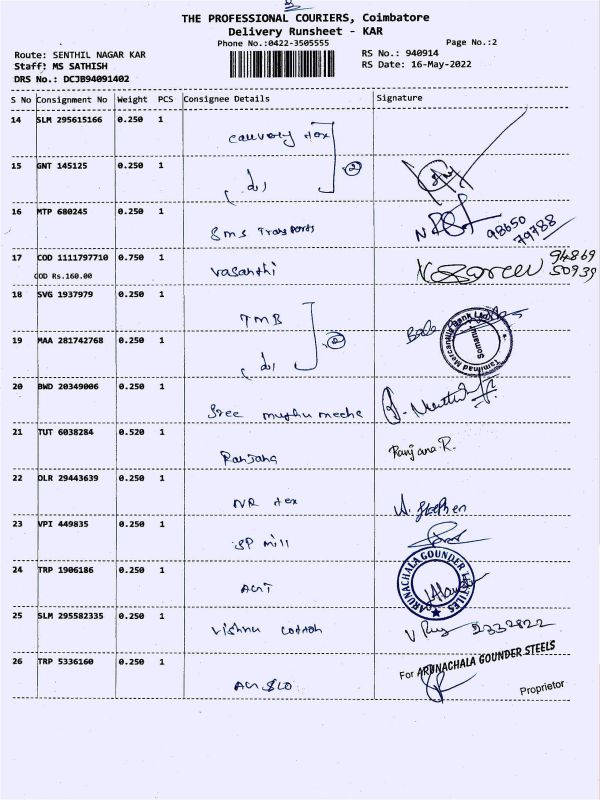 THE PROFESSIONAL COURIERS, Coimbatore
Delivery Runsheet - KAR
Phone No.:0422-3505555
Page No.:2
Route: SENTHIL NAGAR KAR
RS No.: 940914
Staff: MS SATHISH
RS Date: 16-May-2022
DRS No.: DCJB94091402
S No Consignment No Weight PCS Consignee Details Signature
14 SLM 295615166 0.250 1 cauvery tex
15 GNT 145125 0.250 1 (2)
16 MTP 680245 0.250 1 sms Transports 98650 79788
17 COD 1111797710 0.750 1 vasanthi 94869 50939
COD Rs.160.00
18 SVG 1937979 0.250 1 TMB
Tamilnad Mercantile Bank Ltd. Somanur
19 MAA 281742768 0.250 1 (2)
20 BWD 20349006 0.250 1 Sree muthu meena
21 TUT 6038284 0.520 1 Ranjana Ranjana R.
22 DLR 29443639 0.250 1 NR tex A. Stephen
23 VPI 449835 0.250 1 SP mill
24 TRP 1906186 0.250 1 AGT
ARUNACHALA GOUNDER TEXTILES
25 SLM 295582335 0.250 1 vishnu cotton 2332822
26 TRP 5336160 0.250 1
For ARUNACHALA GOUNDER STEELS
Proprietor